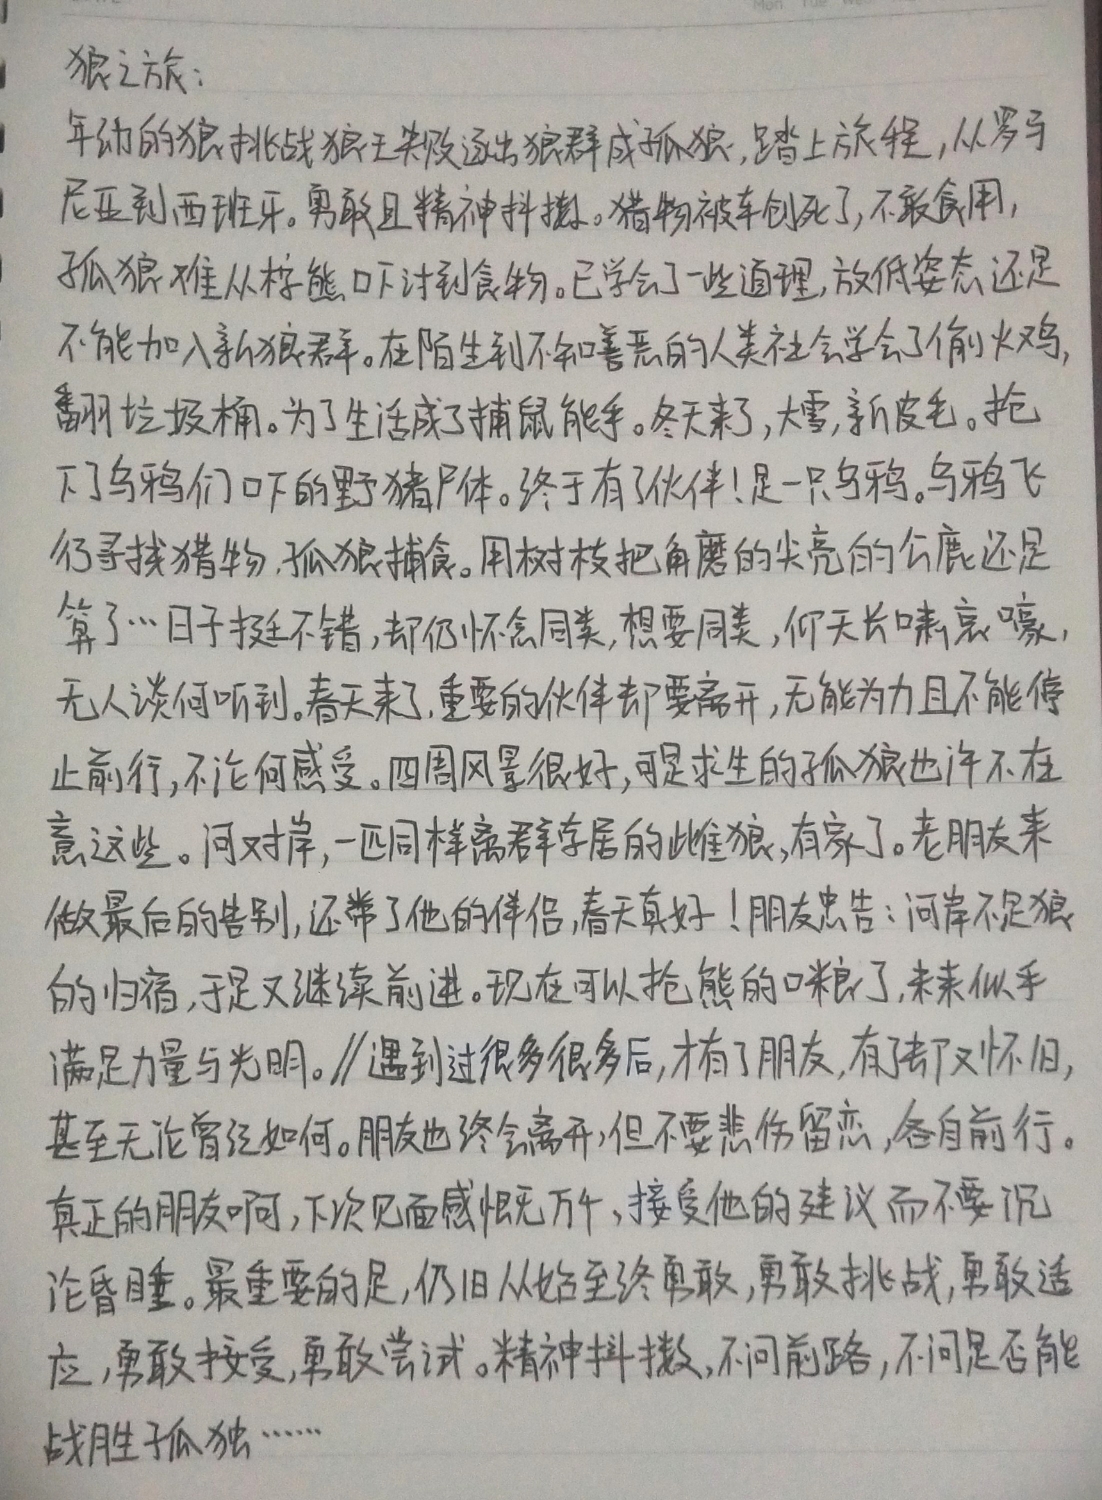 狼之旅：
年幼的狼挑战狼王失败逐出狼群成孤狼，踏上旅程，从罗马
尼亚到西班牙。勇敢且精神抖擞。猎物被车创死了，不敢食用，
孤狼难从棕熊口下讨到食物。已学会了一些道理，放低姿态还是
不能加入新狼群。在陌生到不知善恶的人类社会学会了偷火鸡，
翻垃圾桶。为了生活成了捕鼠能手。冬天来了，大雪，新皮毛。抢
下了乌鸦们口下的野猪尸体。终于有了伙伴！是一只乌鸦。乌鸦飞
行寻找猎物，孤狼捕食。用树枝把角磨的尖亮的公鹿还是
算了…日子挺不错，却仍怀念同类，想要同类，仰天长啸哀嚎，
无人谈何听到。春天来了，重要的伙伴却要离开，无能为力且不能停
止前行，不论何感受。四周风景很好，可是求生的孤狼也许不在
意这些。河对岸，一匹同样离群李居的雌狼，有家了。老朋友来
做最后的告别，还带了他的伴侣，春天真好！朋友忠告：河岸不是狼
的归宿，于是又继续前进。现在可以抢熊的口粮了，未来似乎
满是力量与光明。//遇到过很多很多后，才有了朋友，有了却又怀旧，
甚至无论曾经如何。朋友也终会离开，但不要悲伤留恋，各自前行。
真正的朋友啊，下次见面感慨万千、接受他的建议而不要沉
沦昏睡。最重要的是，仍旧从始至终勇敢，勇敢挑战，勇敢适
应，勇敢接受，勇敢尝试。精神抖擞，不问前路，不问是否能
战胜孤独……